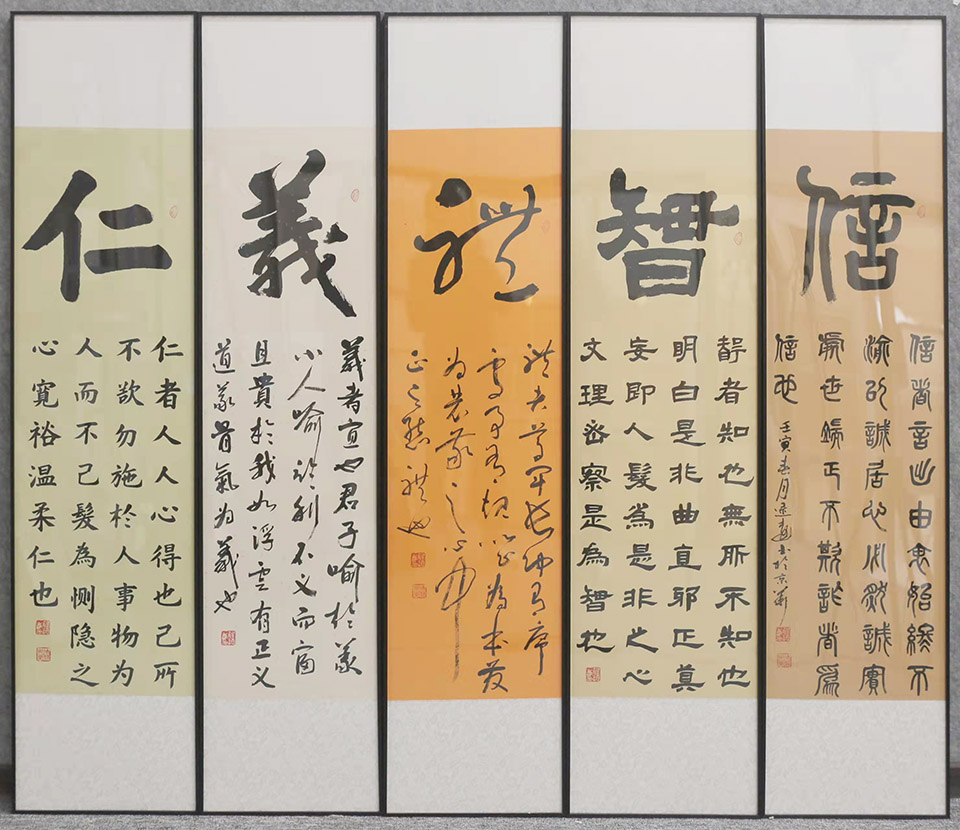 仁
仁者人人心得也己所
不欲勿施於人事物为
人而不己髮為恻隐之
心寬裕温柔仁也
義
義者宜也君子喻於義
小人喻於利不义而富
且貴於我如浮雲有正义
道義骨氣为義也
禮
尊卑長幼有序
處事有規為本发
为恭敬之心中
正之態禮也
智
智者知也無所不知也
明白是非曲直邪正真
妄即人髮為是非之心
文理密察是為智也
信
信者言出由衷始終不
渝以誠居心必然誠實
處世端正不欺詐者爲
信也
壬寅春月書於京華